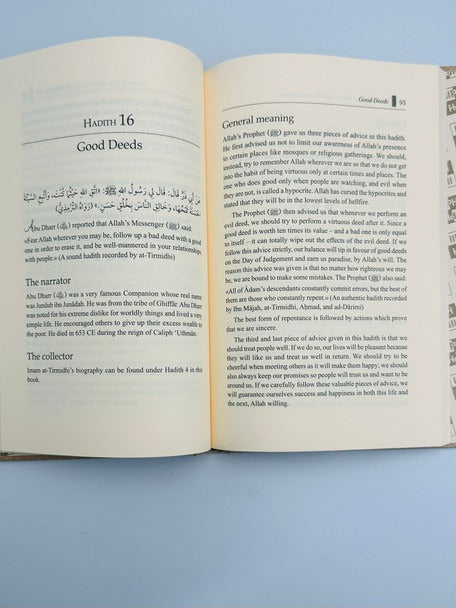 HADITH 16
Good Deeds
عَنْ أَبِي ذَرٍّ قَالَ: قَالَ لِي رَسُولُ اللهِ ﷺ: «اتَّقِ اللهِ حَيْثُمَا كُنْتَ، وَأَتْبِعِ السَّيِّئَةَ
الْحَسَنَةَ تَمْحُهَا، وَخَالِقِ النَّاسَ بِخُلُقٍ حَسَنٍ.» (رَوَاهُ التِّرْمِذِيُّ)
Abu Dharr (﵁) reported that Allah's Messenger (ﷺ) said:
«Fear Allah wherever you may be, follow up a bad deed with a good
one in order to erase it, and be well-mannered in your relationships
with people.» (A sound hadith recorded by at-Tirmidhi)
The narrator
Abu Dharr (﵁) was a very famous Companion whose real name
was Jundub ibn Junâdah. He was from the tribe of Ghiffâr. Abu Dharr
was noted for his extreme dislike for worldly things and lived a very
simple life. He encouraged others to give up their excess wealth to
the poor. He died in 653 CE during the reign of Caliph 'Uthmân.
The collector
Imam at-Tirmidhi's biography can be found under Hadith 4 in this
book.
Good Deeds 93
General meaning
Allah's Prophet (ﷺ) gave us three pieces of advice in this hadith.
He first advised us not to limit our awareness of Allah's presence
to certain places like mosques or religious gatherings. We should,
instead, try to remember Allah wherever we are so that we do not get
into the habit of being virtuous only at certain times and places. The
one who does good only when people are watching, and evil when
they are not, is called a hypocrite. Allah has cursed the hypocrites and
stated that they will be in the lowest levels of hellfire.
The Prophet (ﷺ) then advised us that whenever we perform an
evil deed, we should try to perform a virtuous deed after it. Since a
good deed is worth ten times its value – and a bad one is only equal
to itself – it can totally wipe out the effects of the evil deed. If we
follow this advice strictly, our balance will tip in favour of good deeds
on the Day of Judgement and earn us paradise, by Allah's will. The
reason this advice was given is that no matter how righteous we may
be, we are bound to make some mistakes. The Prophet (ﷺ) also said:
«All of Âdam's descendants constantly commit errors, but the best of
them are those who constantly repent.» (An authentic hadith recorded
by Ibn Mâjah, at-Tirmidhi, Aḥmad, and ad-Dârimi)
The best form of repentance is followed by actions which prove
that we are sincere.
The third and last piece of advice given in this hadith is that we
should treat people well. If we do so, our lives will be pleasant because
they will like us and treat us well in return. We should try to be
cheerful when meeting others as it will make them happy; we should
also always keep our promises so people will trust us and want to be
around us. If we carefully follow these valuable pieces of advice, we
will guarantee ourselves success and happiness in both this life and
the next, Allah willing.